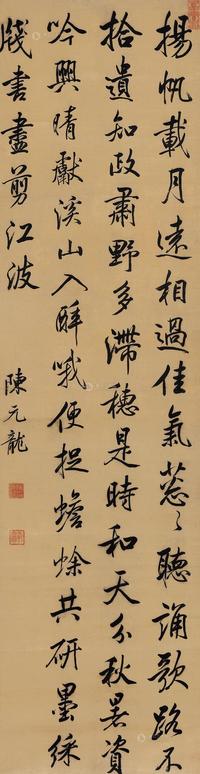 揚帆載月遠相過佳氣蔥〻聽誦歌路不
拾遺知政肅野多滯穗是時和天分秋暑資
吟興晴獻溪山入醉哦便捉蟾蜍共研墨綵
牋書盡剪江波
陳元龍